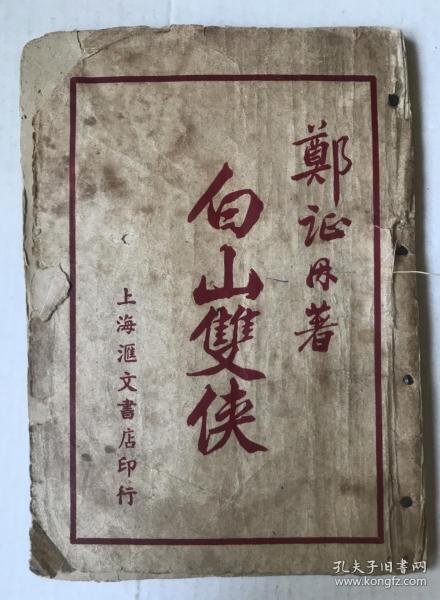 鄭証因著
白山雙俠
上海滙文書店印行
孔夫子旧書网
www.kongfz.com